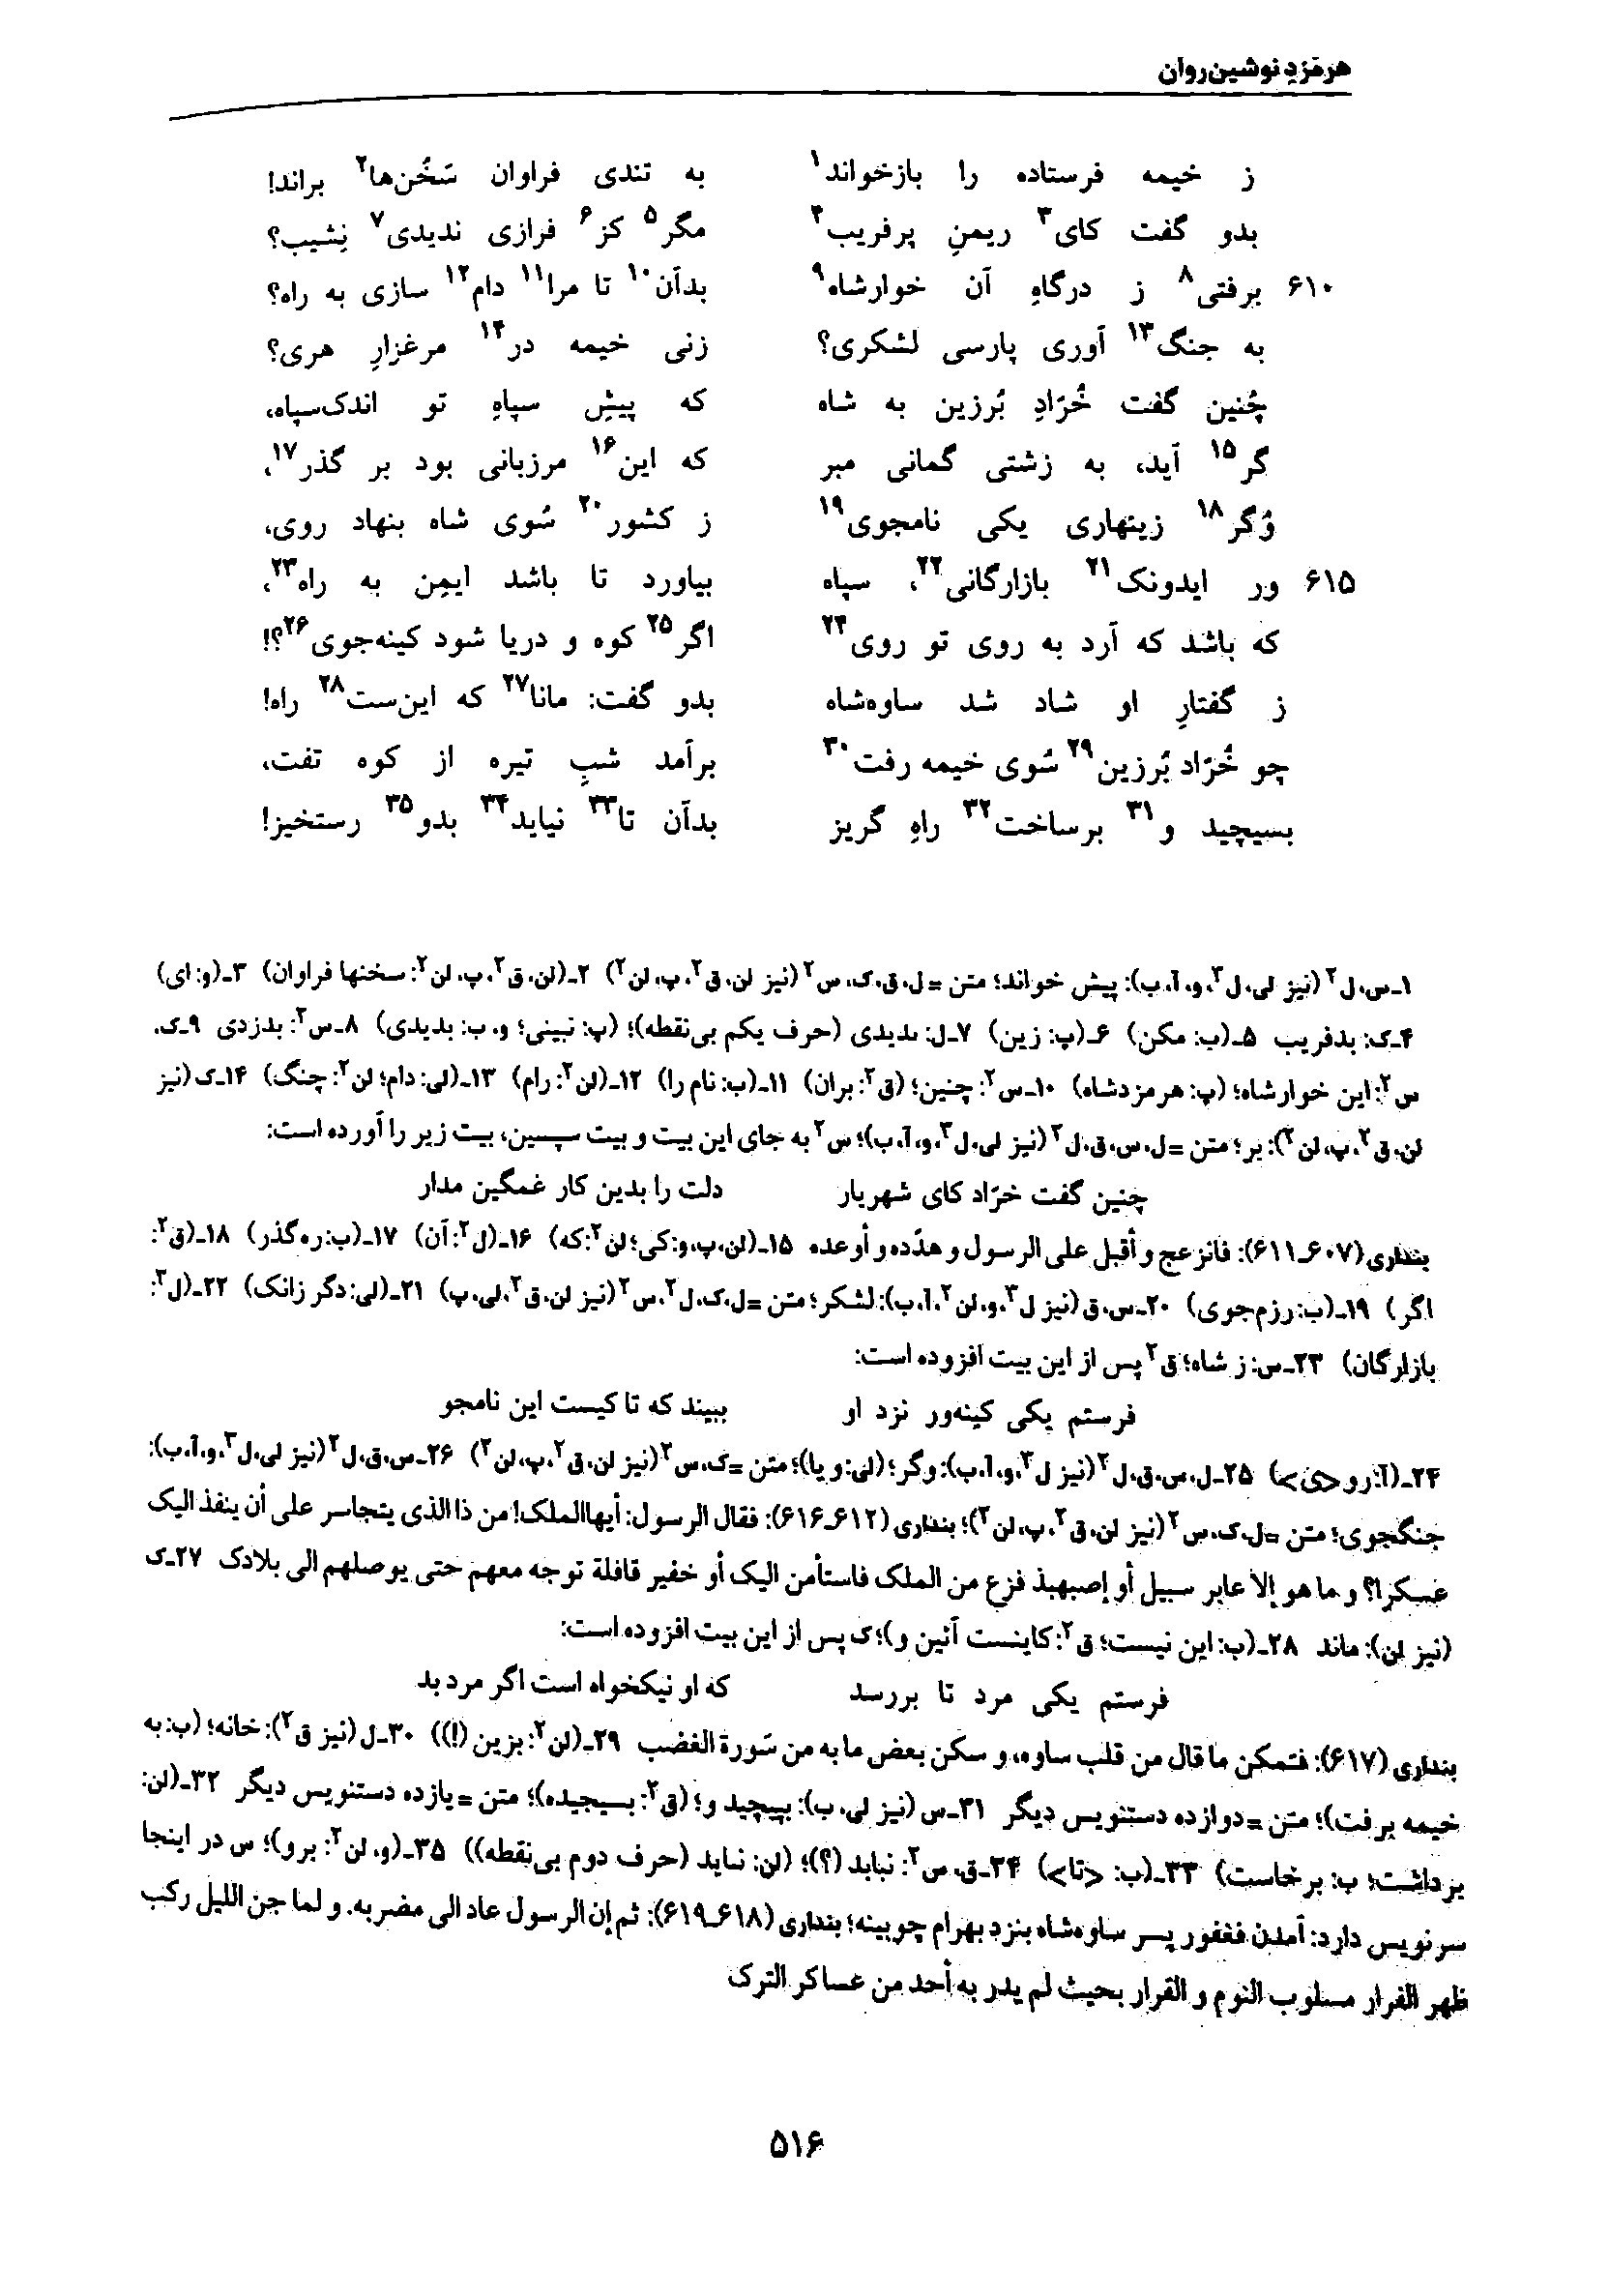 هرمَزدِ نوشین‌روان
ز خیمه فرستاده را بازخواند۱ به تندی فراوان سَخُن‌ها۲ براند!
بدو گفت کای۳ ریمنِ پرفریب۴ مگر۵ کز۶ فرازی ندیدی۷ نِشیب؟
۶۱۰ برفتی۸ ز درگاهِ آن خوارشاه۹ بدآن۱۰ تا مرا۱۱ دام۱۲ سازی به راه؟
به جنگ۱۳ آوری پارسی لشکری؟ زنی خیمه در۱۴ مرغزارِ هری؟
چُنین گفت خُرّادِ بُرزین به شاه که پیشِ سپاهِ تو اندک‌سپاه،
گر۱۵ آید، به زشتی گمانی مبر که این۱۶ مرزبانی بود بر گذر۱۷،
وُگر۱۸ زینهاری یکی نامجوی۱۹ ز کشور۲۰ سُوی شاه بنهاد روی،
۶۱۵ ور ایدونک۲۱ بازارگانی۲۲، سپاه بیاورد تا باشد ایمِن به راه۲۳،
که باشد که آرد به روی تو روی۲۴ اگر۲۵ کوه و دریا شود کینه‌جوی۲۶؟!
ز گفتارِ او شاد شد ساوه‌شاه بدو گفت: مانا۲۷ که این‌ست۲۸ راه!
چو خُرّاد بُرزین۲۹ سُوی خیمه رفت۳۰ برآمد شبِ تیره از کوه تفت،
بسیچید و۳۱ برساخت۳۲ راهِ گریز بدآن تا۳۳ نیاید۳۴ بدو۳۵ رستخیز!
۱ـ س، ل۲ (نیز لی، ل۳، و، آ، ب): پیش خواند؛ متن = ل، ق، ک، س۲ (نیز لن، ق۲، پ، لن۲) ۲ـ (لن، ق۲، پ، لن۲: سخنها فراوان) ۳ـ (و: ای)
۴ـ ک: بدفریب ۵ـ (ب: مکن) ۶ـ (پ: زین) ۷ـ ل: ٮدیدی (حرف یکم بی‌نقطه)؛ (پ: نبینی؛ و، ب: بدیدی) ۸ـ س۲: بدزدی ۹ـ ک،
س۲: این خوارشاه؛ (پ: هرمزدشاه) ۱۰ـ س۲: چنین؛ (ق۲: بران) ۱۱ـ (ب: نام را) ۱۲ـ (لن۲: رام) ۱۳ـ (لی: دام؛ لن۲: چنگ) ۱۴ـ ک (نیز
لن، ق۲، پ، لن۲): بر؛ متن = ل، س، ق، ل۲ (نیز لی، ل۳، و، آ، ب)؛ س۲ به جای این بیت و بیت سپسین، بیت زیر را آورده است:
چنین گفت خرّاد کای شهریار دلت را بدین کار غمگین مدار
بنداری (۶۰۷ـ۶۱۱): فانزعج و أقبل علی الرسول و هدّده و أوعده ۱۵ـ (لن، پ، و: کی؛ لن۲: که) ۱۶ـ (ل۲: آن) ۱۷ـ (ب: ره گذر) ۱۸ـ (ق۲:
اگر) ۱۹ـ (ب: رزم‌جوی) ۲۰ـ س، ق (نیز ل۳، و، لن۲، آ، ب): لشکر؛ متن = ل، ک، ل۲، س۲ (نیز لن، ق۲، لی، پ) ۲۱ـ (لی: دگر زانک) ۲۲ـ (ل۳:
بازارگان) ۲۳ـ س: ز شاه؛ ق۲ پس از این بیت افزوده است:
فرستم یکی کینه‌ور نزد او ببیند که تا کیست این نامجو
۲۴ـ (آ: رو <ی>) ۲۵ـ ل، س، ق، ل۲ (نیز ل۳، و، آ، ب): وگر؛ (لی: و یا)؛ متن = ک، س۲ (نیز لن، ق۲، پ، لن۲) ۲۶ـ س، ق، ل۲ (نیز لی، ل۳، و، آ، ب):
جنگجوی؛ متن = ل، ک، س۲ (نیز لن، ق۲، پ، لن۲)؛ بنداری (۶۱۲ـ۶۱۶): فقال الرسول: أیهاالملک! من ذا الذی یتجاسر علی أن ینفذ الیک
عسکرا؟ و ما هو إلا عابر سبیل أو إصبهبذ فزع من الملک فاستأمن الیک أو خفیر قافلة توجه معهم حتی یوصلهم الی بلادک ۲۷ـ ک
(نیز لن): ماند ۲۸ـ (ب: این نیست؛ ق۲: کاینست آئین و)؛ ک پس از این بیت افزوده است:
فرستم یکی مرد تا بررسد که او نیکخواه است اگر مرد بد
بنداری (۶۱۷): فتمکن ما قال من قلب ساوه، و سکن بعض ما به من سَورة الغضب ۲۹ـ (لن۲: بزین (!)) ۳۰ـ ل (نیز ق۲): خانه؛ (ب: به
خیمه برفت)؛ متن = دوازده دستنویس دیگر ۳۱ـ س (نیز لی، ب): بپیچید و؛ (ق۲: بسیجیده)؛ متن = یازده دستنویس دیگر ۳۲ـ (لن:
برداشت؛ ب: برخاست) ۳۳ـ (ب: <تا>) ۳۴ـ ق، س۲: نباید (؟)؛ (لن: نٮاید (حرف دوم بی‌نقطه)) ۳۵ـ (و، لن۲: برو)؛ س در اینجا
سرنویس دارد: آمدن فغفور پسر ساوه‌شاه بنزد بهرام چوبینه؛ بنداری (۶۱۸ـ۶۱۹): ثم إن الرسول عاد الی مضربه. و لما جن اللیل رکب
ظهر الفرار مسلوب النوم و القرار بحیث لم یدر به أحد من عساکر الترک
۵۱۶